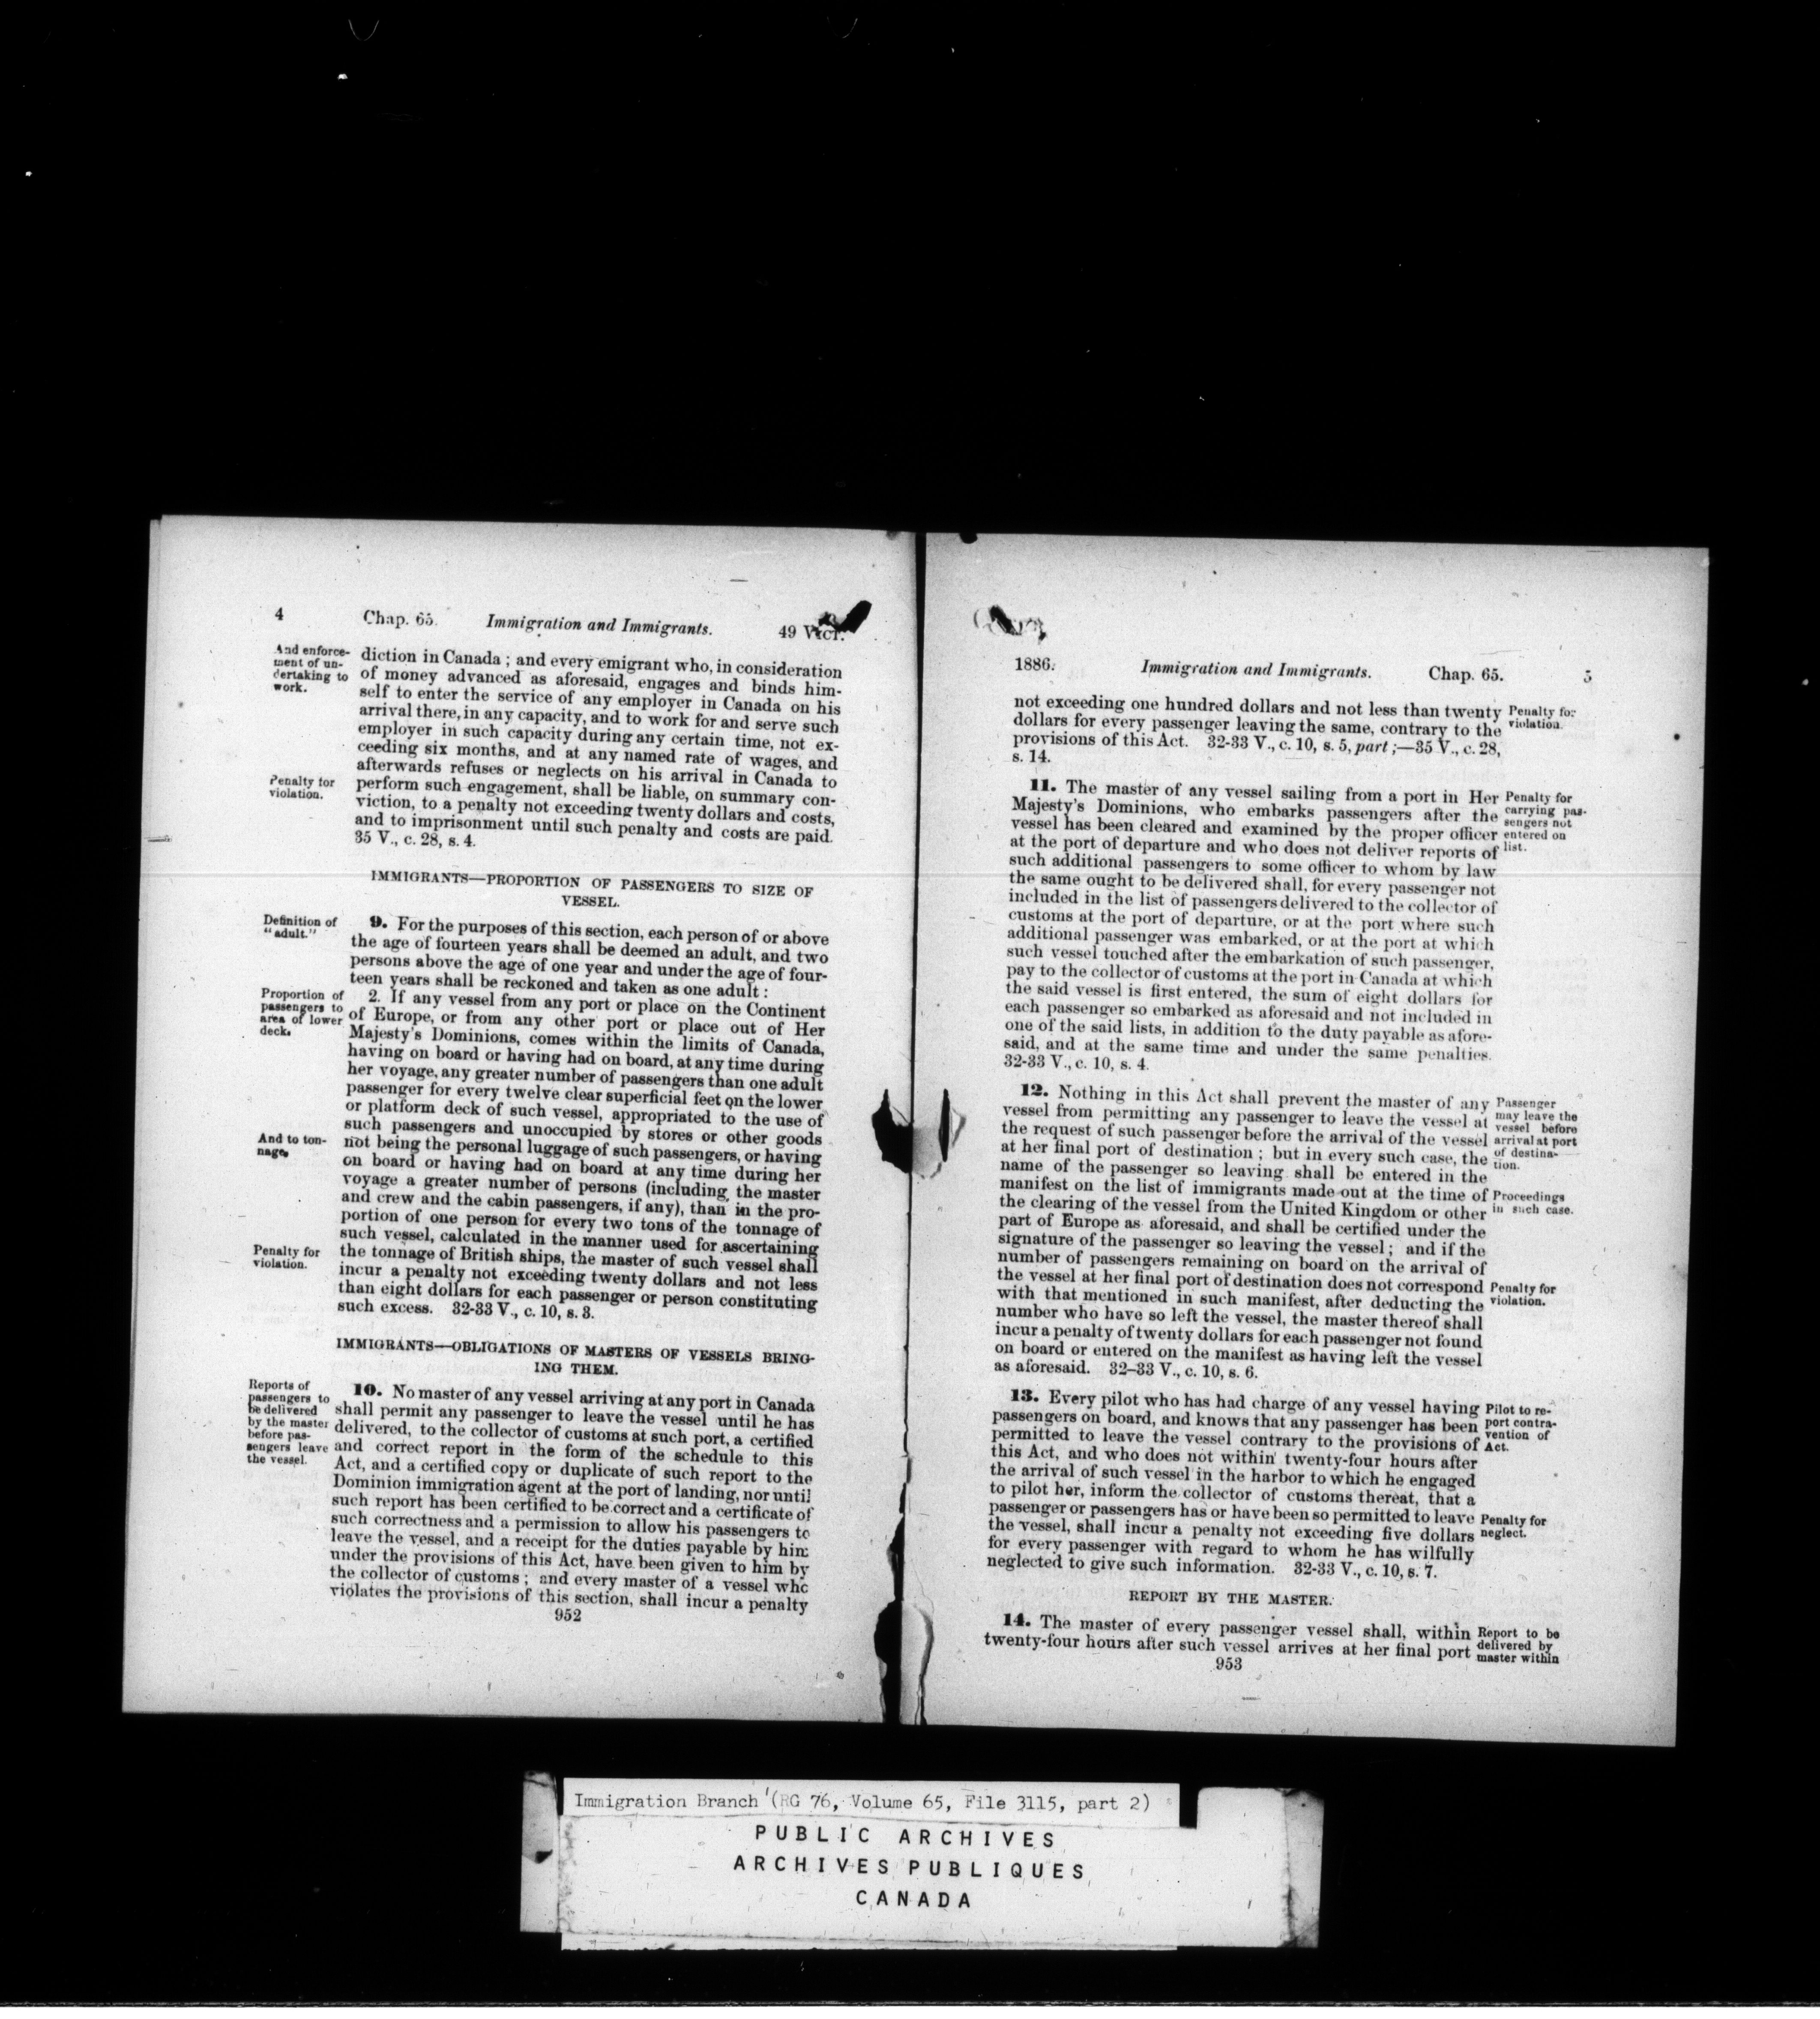 4 Chap. 65. Immigration and Immigrants. 49 Vict.
And enforce-
ment of un-
dertaking to
work.
diction in Canada ; and every emigrant who, in consideration
of money advanced as aforesaid, engages and binds him-
self to enter the service of any employer in Canada on his
arrival there, in any capacity, and to work for and serve such
employer in such capacity during any certain time, not ex-
ceeding six months, and at any named rate of wages, and
afterwards refuses or neglects on his arrival in Canada to
Penalty for
violation.
perform such engagement, shall be liable, on summary con-
viction, to a penalty not exceeding twenty dollars and costs,
and to imprisonment until such penalty and costs are paid.
35 V., c. 28, s. 4.
IMMIGRANTS—PROPORTION OF PASSENGERS TO SIZE OF
VESSEL.
Definition of
"adult."
9. For the purposes of this section, each person of or above
the age of fourteen years shall be deemed an adult, and two
persons above the age of one year and under the age of four-
teen years shall be reckoned and taken as one adult :
Proportion of
passengers to
area of lower
deck.
2. If any vessel from any port or place on the Continent
of Europe, or from any other port or place out of Her
Majesty's Dominions, comes within the limits of Canada,
having on board or having had on board, at any time during
her voyage, any greater number of passengers than one adult
passenger for every twelve clear superficial feet on the lower
or platform deck of such vessel, appropriated to the use of
such passengers and unoccupied by stores or other goods
And to ton-
nage.
not being the personal luggage of such passengers, or having
on board or having had on board at any time during her
voyage a greater number of persons (including the master
and crew and the cabin passengers, if any), than in the pro-
portion of one person for every two tons of the tonnage of
such vessel, calculated in the manner used for ascertaining
Penalty for
violation.
the tonnage of British ships, the master of such vessel shall
incur a penalty not exceeding twenty dollars and not less
than eight dollars for each passenger or person constituting
such excess. 32-33 V., c. 10, s. 3.
IMMIGRANTS—OBLIGATIONS OF MASTERS OF VESSELS BRING-
ING THEM.
Reports of
passengers to
be delivered
by the master
before pas-
sengers leave
the vessel.
10. No master of any vessel arriving at any port in Canada
shall permit any passenger to leave the vessel until he has
delivered, to the collector of customs at such port, a certified
and correct report in the form of the schedule to this
Act, and a certified copy or duplicate of such report to the
Dominion immigration agent at the port of landing, nor until
such report has been certified to be correct and a certificate of
such correctness and a permission to allow his passengers to
leave the vessel, and a receipt for the duties payable by him
under the provisions of this Act, have been given to him by
the collector of customs ; and every master of a vessel who
violates the provisions of this section, shall incur a penalty
952
1886. Immigration and Immigrants. Chap. 65. 5
not exceeding one hundred dollars and not less than twenty
dollars for every passenger leaving the same, contrary to the
provisions of this Act. 32-33 V., c. 10, s. 5, part ;—35 V., c. 28,
s. 14.
Penalty for
violation.
11. The master of any vessel sailing from a port in Her
Majesty's Dominions, who embarks passengers after the
vessel has been cleared and examined by the proper officer
at the port of departure and who does not deliver reports of
such additional passengers to some officer to whom by law
the same ought to be delivered shall, for every passenger not
included in the list of passengers delivered to the collector of
customs at the port of departure, or at the port where such
additional passenger was embarked, or at the port at which
such vessel touched after the embarkation of such passenger,
pay to the collector of customs at the port in Canada at which
the said vessel is first entered, the sum of eight dollars for
each passenger so embarked as aforesaid and not included in
one of the said lists, in addition to the duty payable as afore-
said, and at the same time and under the same penalties.
32-33 V., c. 10, s. 4.
Penalty for
carrying pas-
sengers not
entered on
list.
12. Nothing in this Act shall prevent the master of any
vessel from permitting any passenger to leave the vessel at
the request of such passenger before the arrival of the vessel
at her final port of destination ; but in every such case, the
name of the passenger so leaving shall be entered in the
manifest on the list of immigrants made out at the time of
the clearing of the vessel from the United Kingdom or other
part of Europe as aforesaid, and shall be certified under the
signature of the passenger so leaving the vessel ; and if the
number of passengers remaining on board on the arrival of
the vessel at her final port of destination does not correspond
with that mentioned in such manifest, after deducting the
number who have so left the vessel, the master thereof shall
incur a penalty of twenty dollars for each passenger not found
on board or entered on the manifest as having left the vessel
as aforesaid. 32–33 V., c. 10, s. 6.
Passenger
may leave the
vessel before
arrival at port
of destina-
tion.
Proceedings
in such case.
Penalty for
violation.
13. Every pilot who has had charge of any vessel having
passengers on board, and knows that any passenger has been
permitted to leave the vessel contrary to the provisions of
this Act, and who does not within twenty-four hours after
the arrival of such vessel in the harbor to which he engaged
to pilot her, inform the collector of customs thereat, that a
passenger or passengers has or have been so permitted to leave
the vessel, shall incur a penalty not exceeding five dollars
for every passenger with regard to whom he has wilfully
neglected to give such information. 32-33 V., c. 10, s. 7.
Pilot to re-
port contra-
vention of
Act.
Penalty for
neglect.
REPORT BY THE MASTER.
14. The master of every passenger vessel shall, within
twenty-four hours after such vessel arrives at her final port
Report to be
delivered by
master within
953
Immigration Branch (RG 76, Volume 65, File 3115, part 2)
PUBLIC ARCHIVES
ARCHIVES PUBLIQUES
CANADA